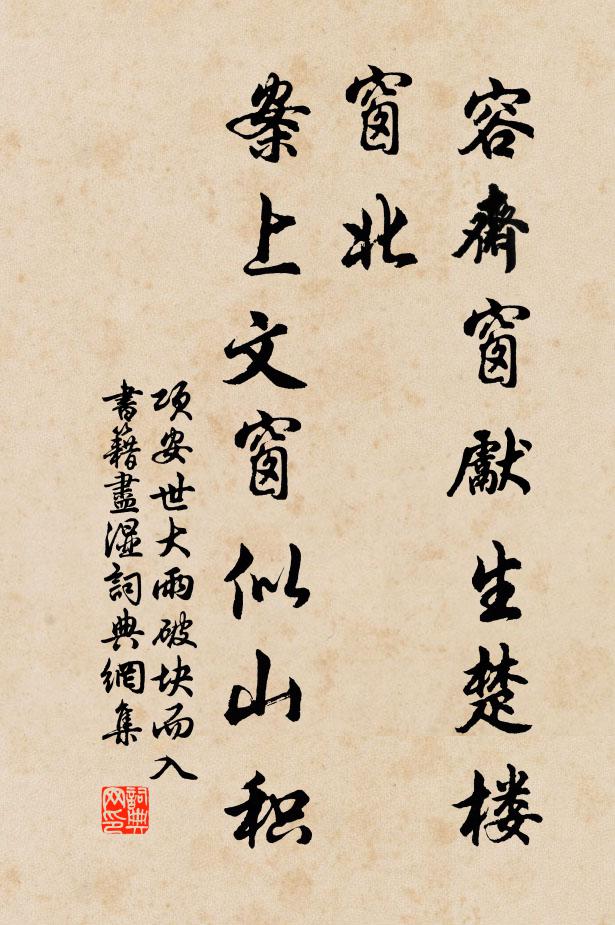 容齋窗獻生楚楼
窗北
案上文窗似山积
项安世大雨破块而入
書籍盡濕詞典網集
詞典
网印